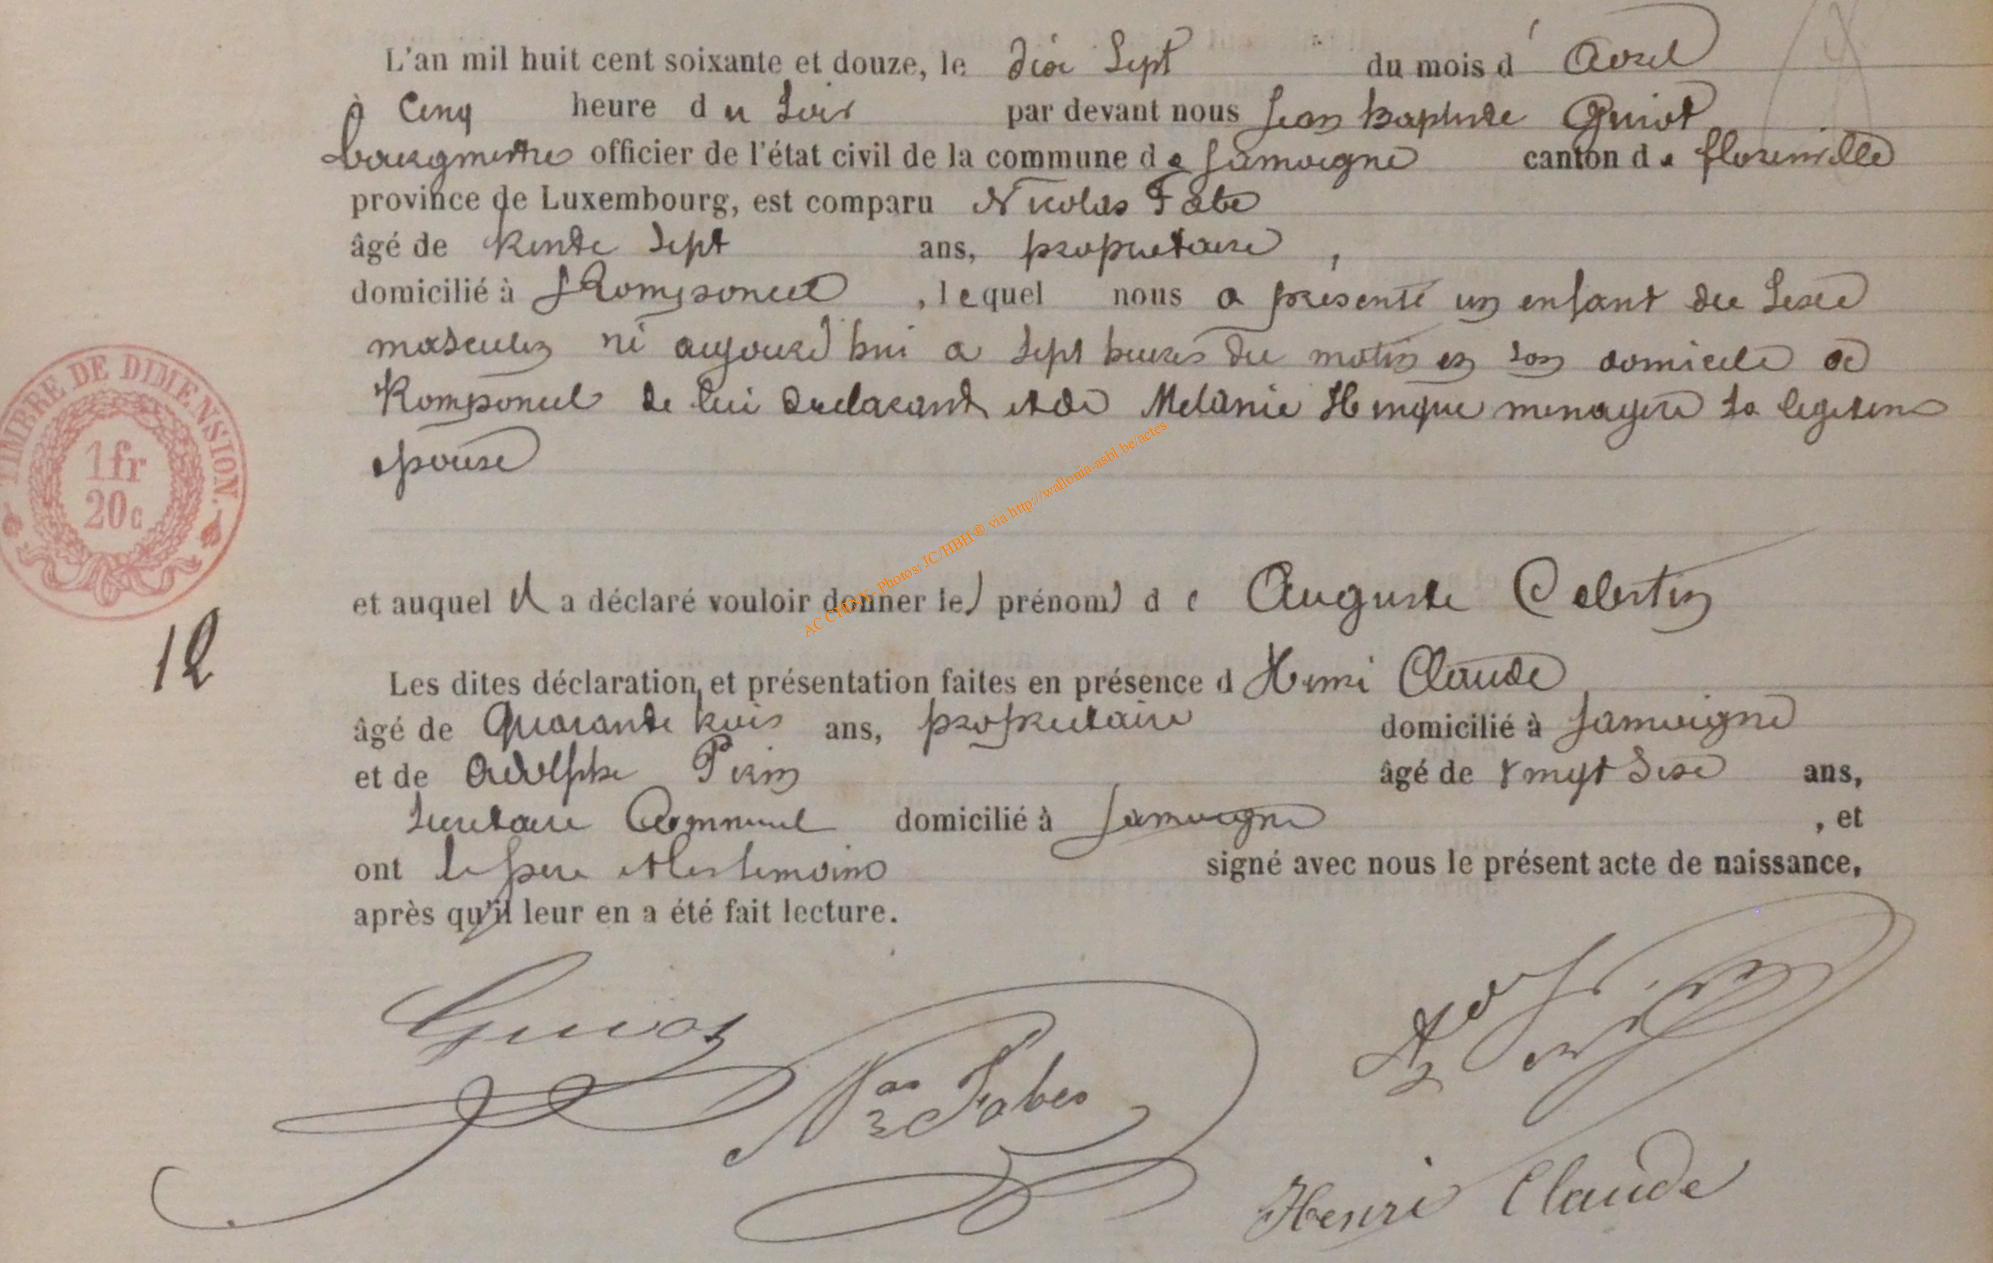 L'an mil huit cent soixante et douze, le dix Sept du mois d' Avril
à Cinq heure du Soir par devant nous Jean baptiste Guiot
bourgmestre officier de l'état civil de la commune de Jamoigne canton de florenville
province de Luxembourg, est comparu Nicolas Fabe
âgé de trente Sept ans, proprietaire ,
domicilié à Romponcel , lequel nous a présenté un enfant du Sexe
masculin né aujourd'hui a Sept heures du matin en son domicile de
Romponcel de lui declarant et de Melanie Henque menagere Sa legitime
epouse
TIMBRE DE DIMENSION.
1fr
20c
et auquel il a déclaré vouloir donner le) prénom) de Auguste Celestin
12
Les dites déclaration et présentation faites en présence d Henri Claude
âgé de Quarante trois ans, proprietaire domicilié à Jamoigne
et de Adolphe Pirin âgé de vingt Sixe ans,
Secretaire Communal domicilié à Jamoigne , et
ont le pere et les temoins signé avec nous le présent acte de naissance,
après qu'il leur en a été fait lecture.
Guiot
Nas Fabes
Henri Claude
Photos: JC/HBH © via http://wallonia-asbl.be/actes